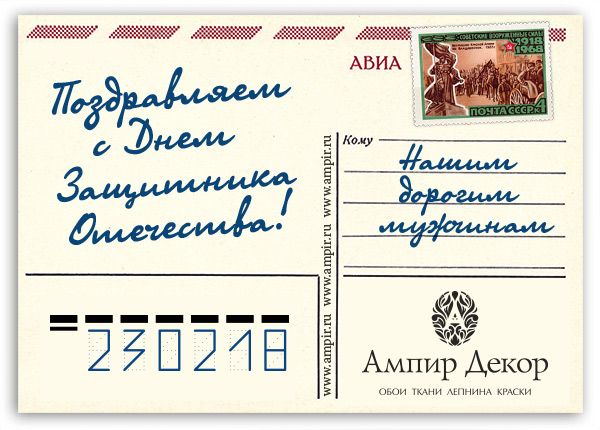 Поздравляем
с Днем
Защитника
Отечества!
АВИА
СОВЕТСКИЕ ВООРУЖЕННЫЕ СИЛЫ
1918
1968
ПОЧТА СССР К 4
Кому
Нашим
дорогим
мужчинам
www.ampir.ru www.ampir.ru www.ampir.ru
230218
Ампир Декор
ОБОИ ТКАНИ ЛЕПНИНА КРАСКИ